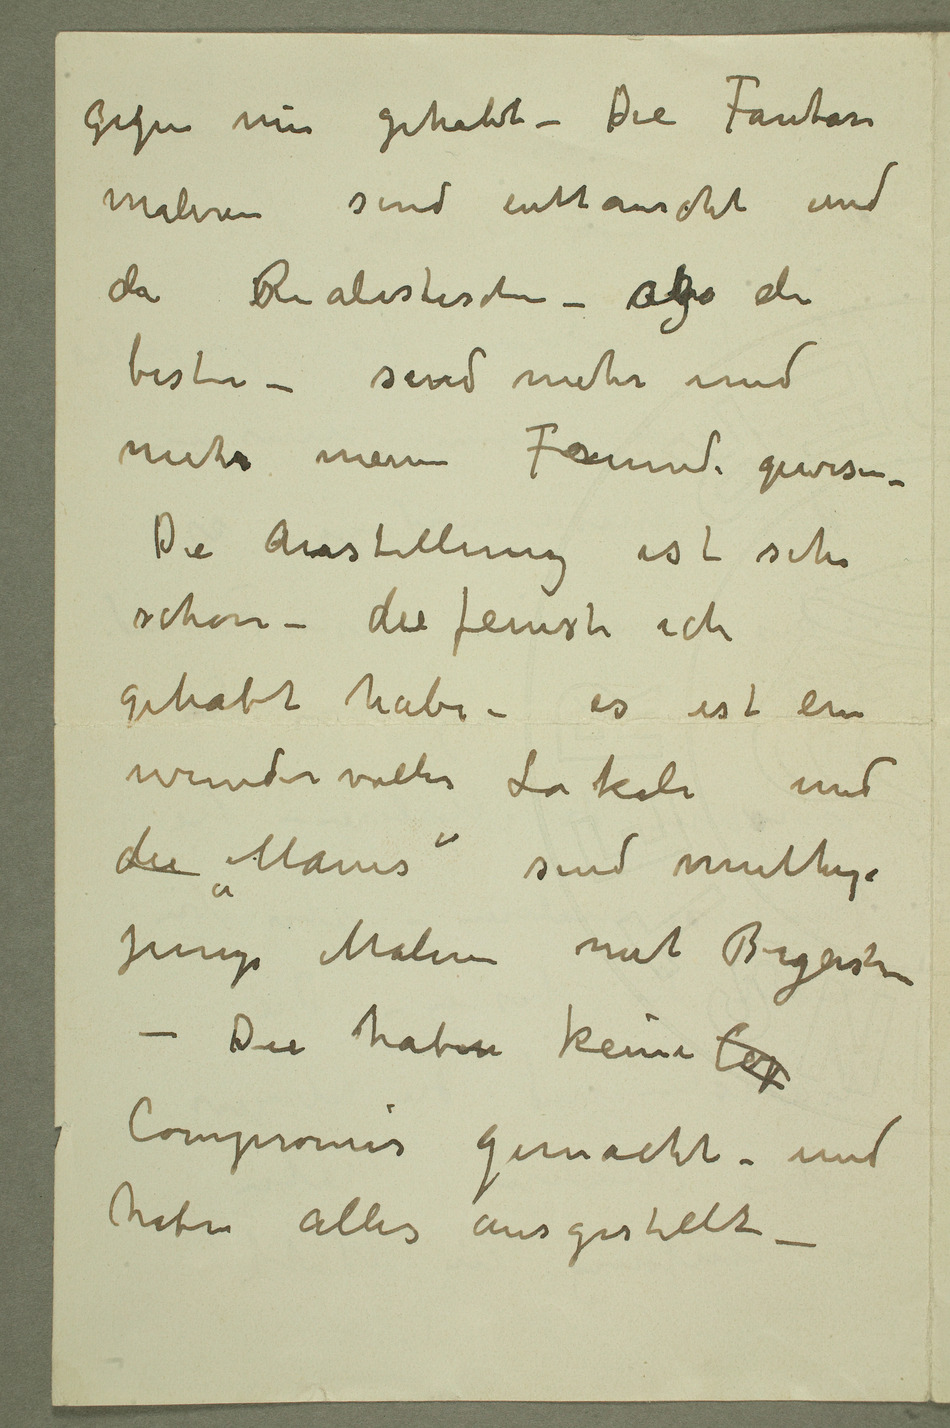 gegen mir gehabt – Die Fantasi
maleren sind enttauscht und
die Realistischen – also die
besten – sind mehr und
mehr meine Freunde gewesen –
Die Ausstellung ist sehr
schön – die feinste ich
gehabt habe – es ist ein
wundervolles Lokale und
die „Manes“ sind muthige
junge Maleren mit Begeistr
– Die haben keine
Compromis gemacht – und
haben alles ausgestellt –